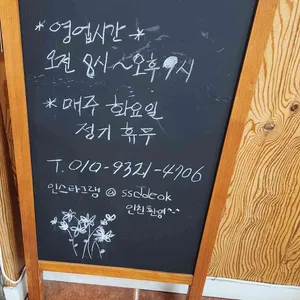 * 영업시간 *
오전 8시~오후 9시
* 매주 화요일
정기 휴무
T. 010-9321-4706
인스타그램 @ ssddeok
인친 환영~